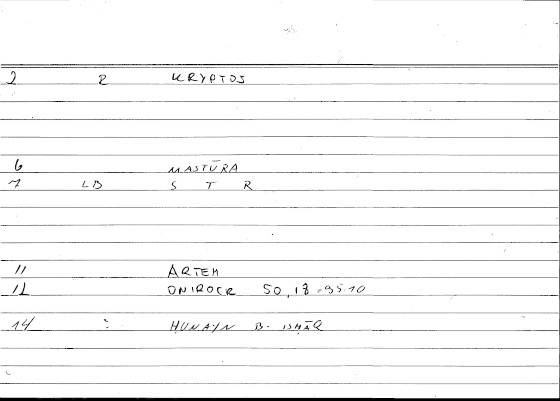 2 2 KRYPTOS
6 MASTŪRA
7 LB S T R
11 ARTEM
12 ONIROCR 50,18 = 95.10
14 : ḤUNAYN B. ISḤĀQ